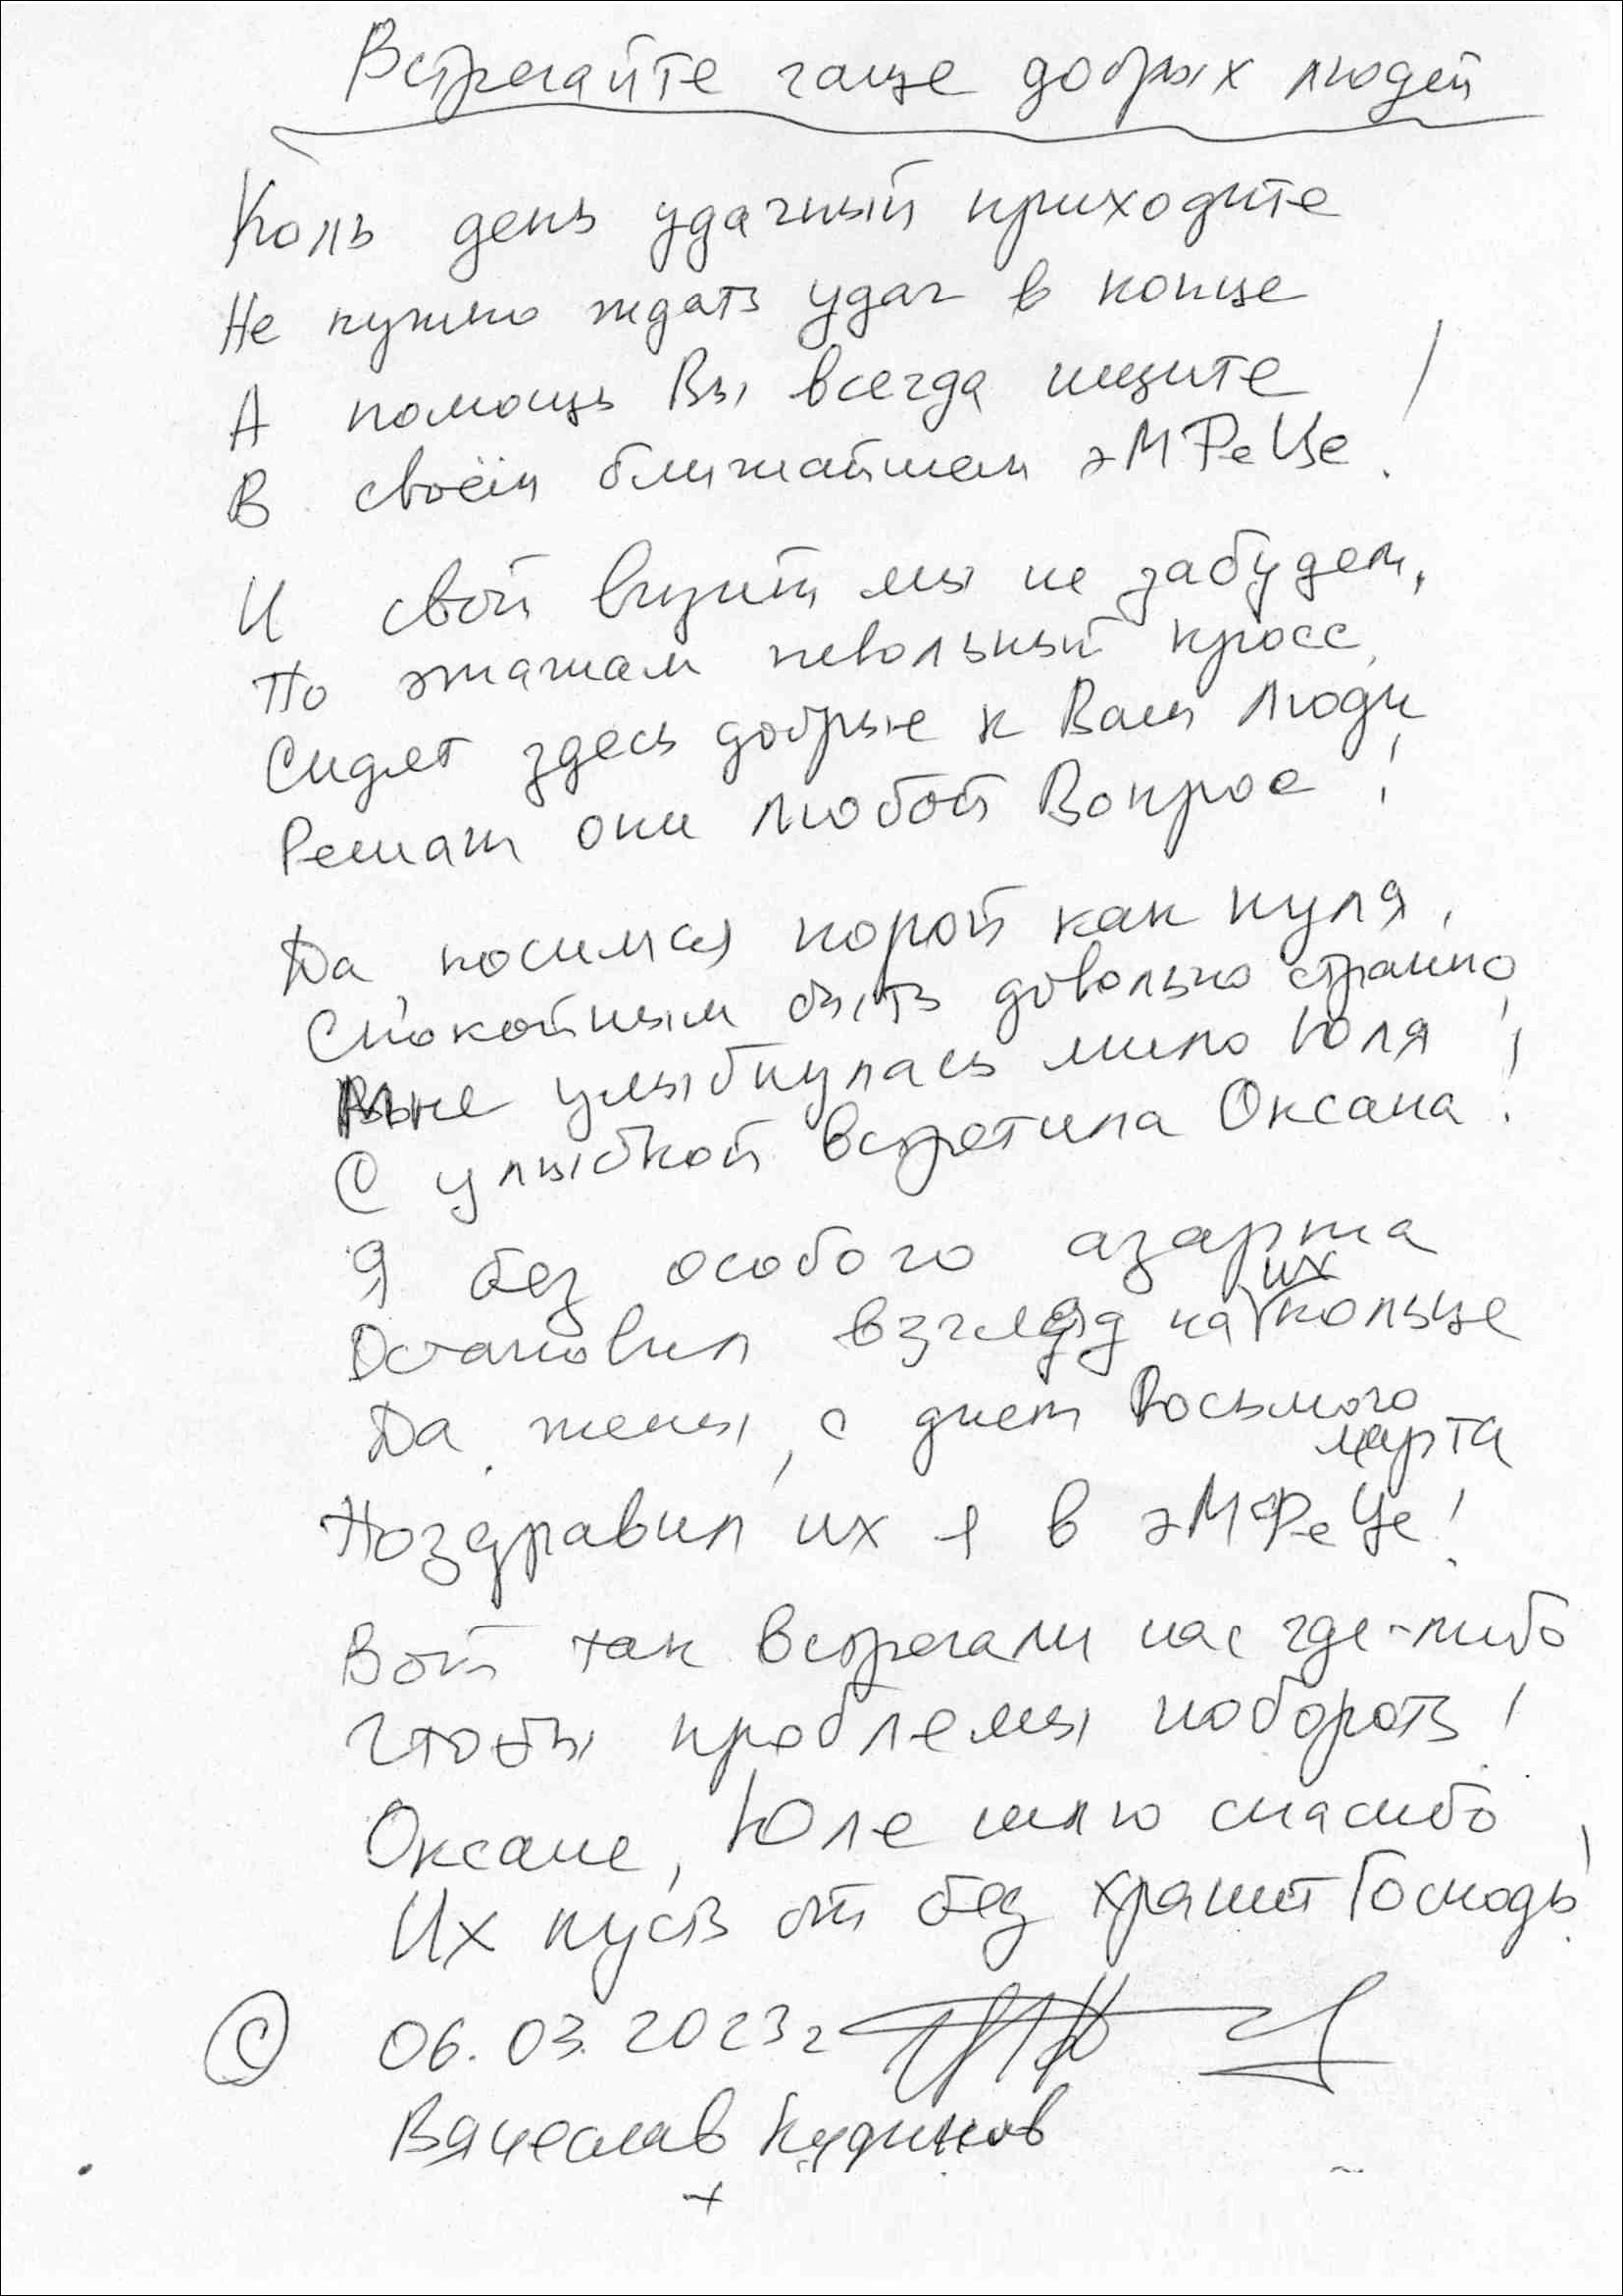 Встречайте чаще добрых людей
Коль день удачный приходите
Не нужно ждать удач в конце
А помощь Вы всегда ищите
В своём ближайшем эМФеЦе!
И свой визит мы не забудем,
По этажам невольный кросс,
Сидят здесь добрые к Вам люди
Решат они любой вопрос!
Да, носимся порой как пуля,
Спокойным быть довольно странно,
Мне улыбнулась мило Юля!
С улыбкой встретила Оксана!
Я без особого азарта
Остановил взгляд на их кольце
Да, жены, с днем Восьмого
марта
Поздравил их я в эМФеЦе!
Вот так встречали нас где-либо
Чтобы проблемы побороть!
Оксане, Юле шлю спасибо
Их пусть от бед хранит Господь!
© 06.03.2023г
Вячеслав Кудинов